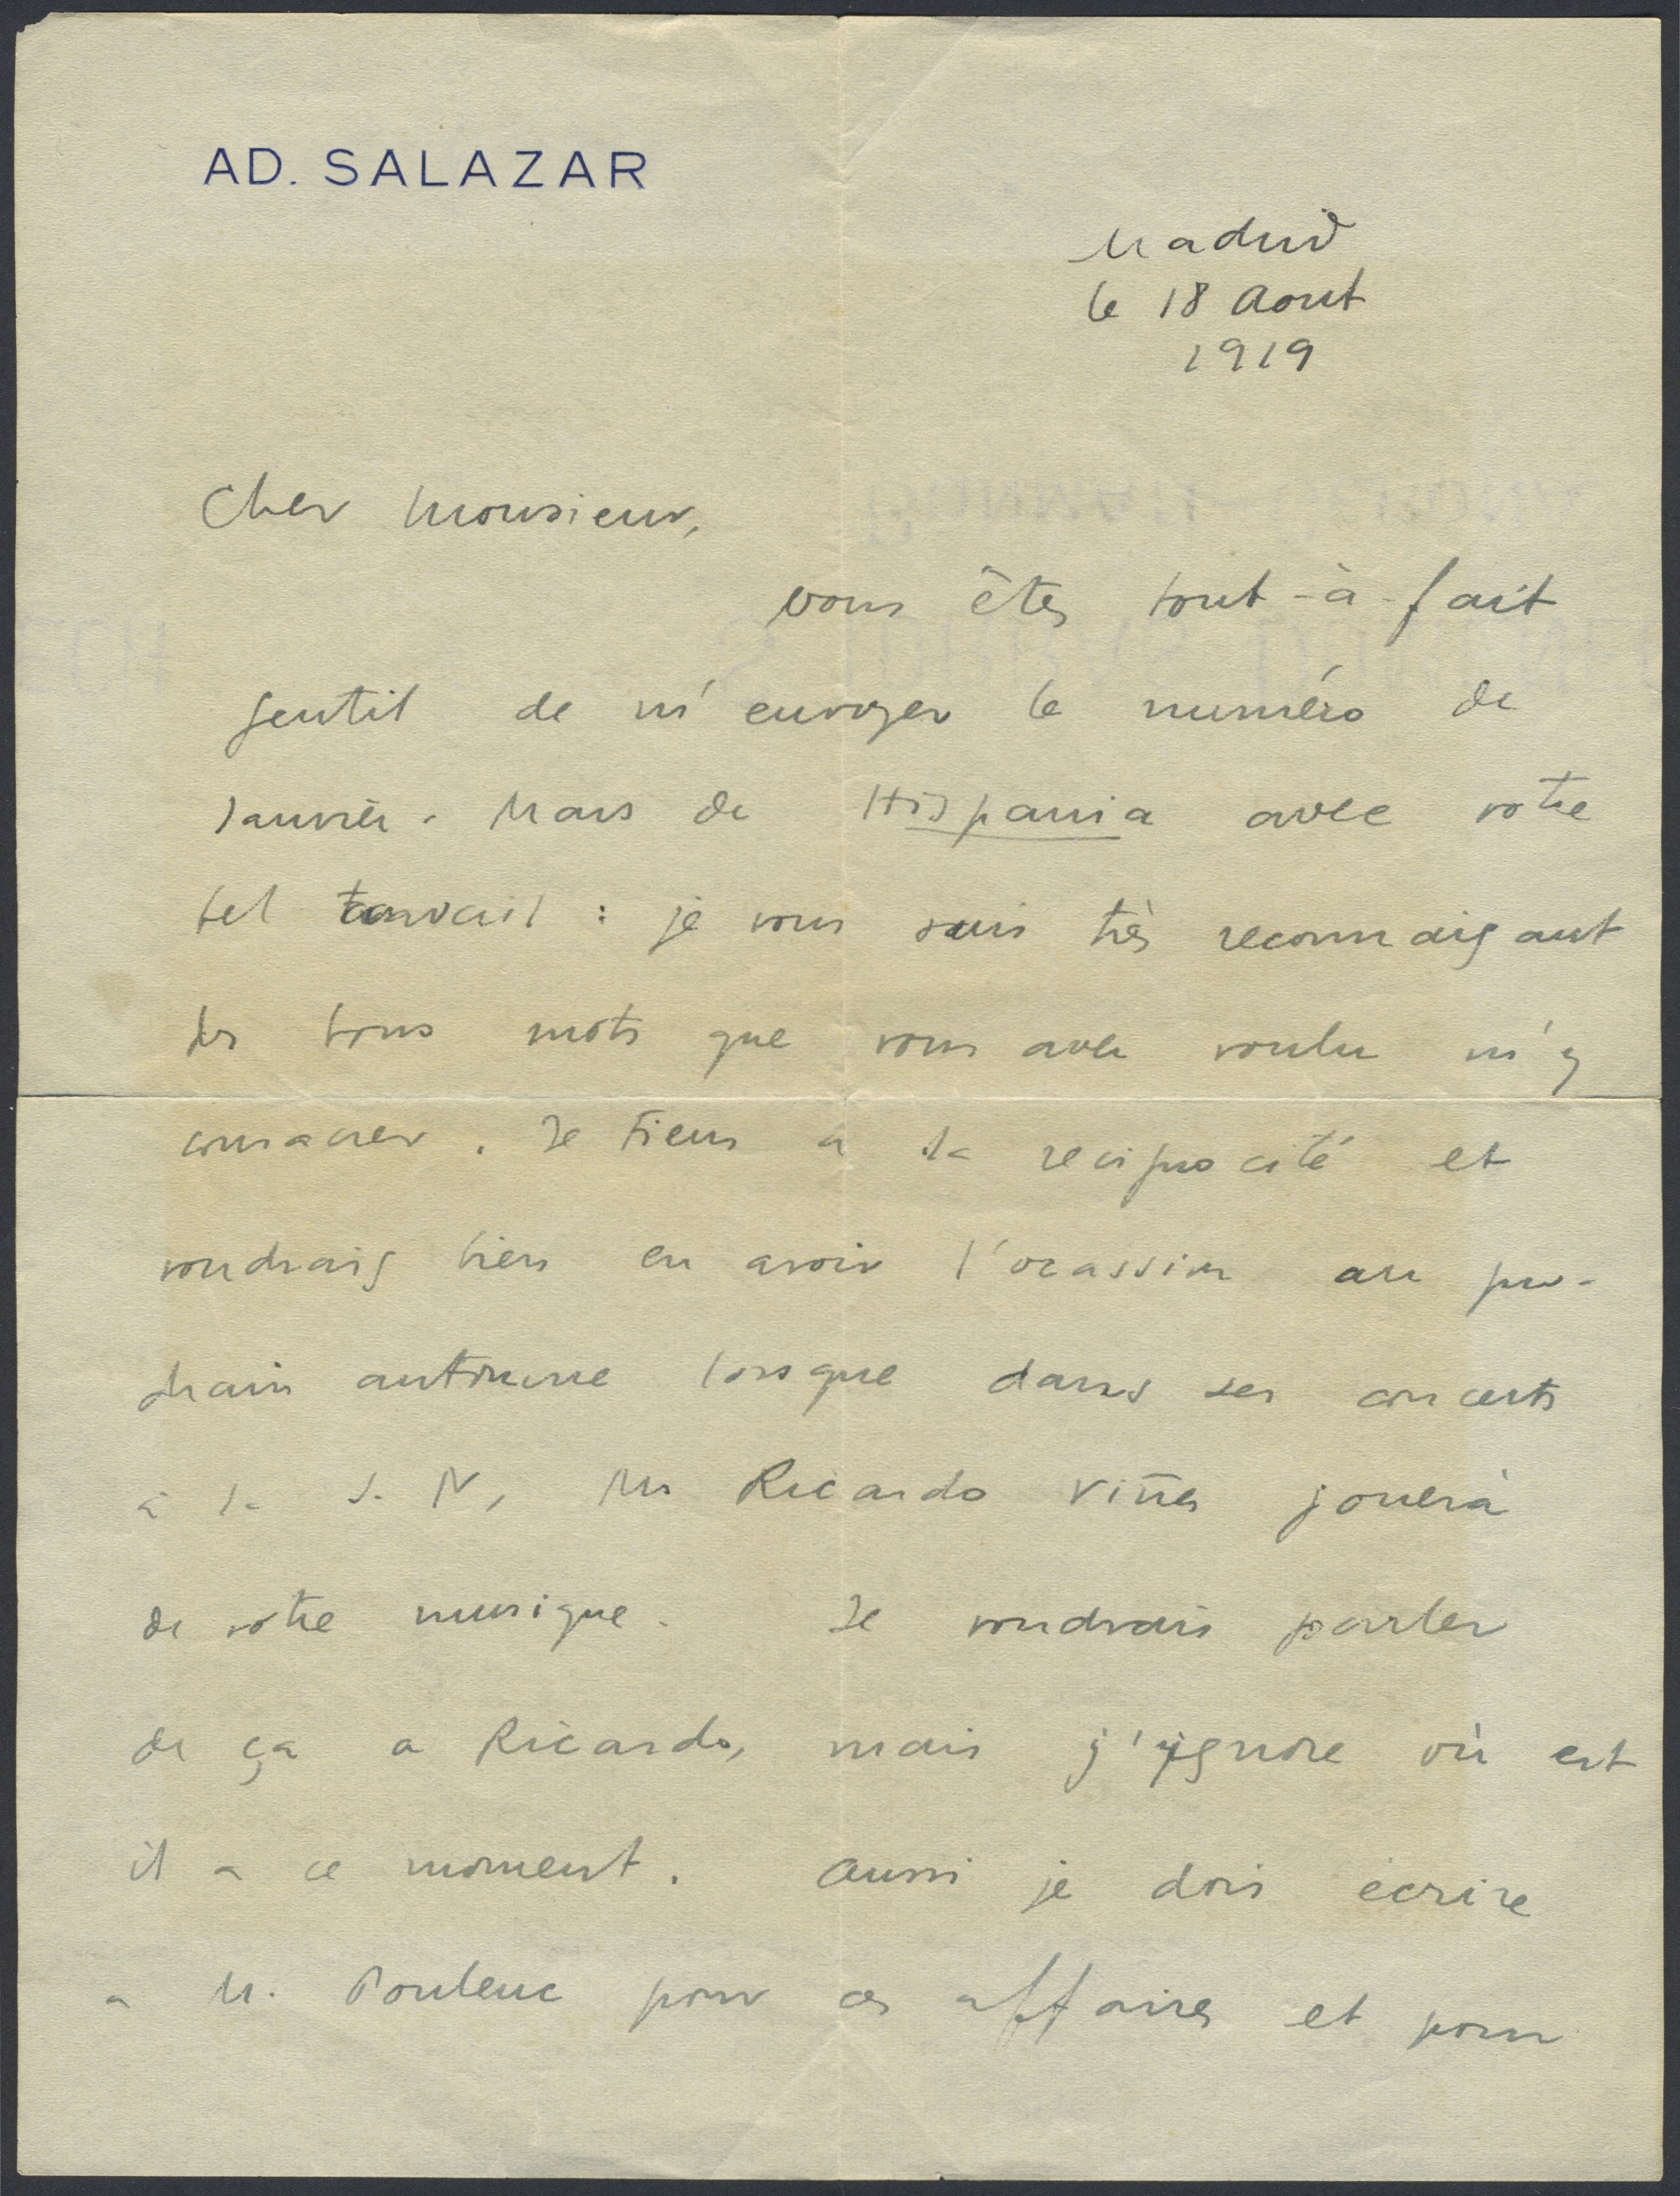 AD. SALAZAR
Madrid
le 18 Aout
1919
Cher Monsieur,
vous êtes tout-à-fait
gentil de m'envoyer le numéro de
Janvièr - Mars de Hispania avec votre
bel travail : je vous suis très reconnaissant
des bons mots que vous avez voulu m'y
consacrer. Je tiens a la reciprocité et
voudrais bien en avoir l'ocassion au pro-
chain automne lorsque dans ses concerts
à la S. N, Mr Ricardo Viñes jouerà
de votre musique. Je voudrais parler
de ça a Ricardo, mais j'ignore où est
il a ce moment. Aussi je dois ecrire
a M. Poulenc pour ces affaires et pour